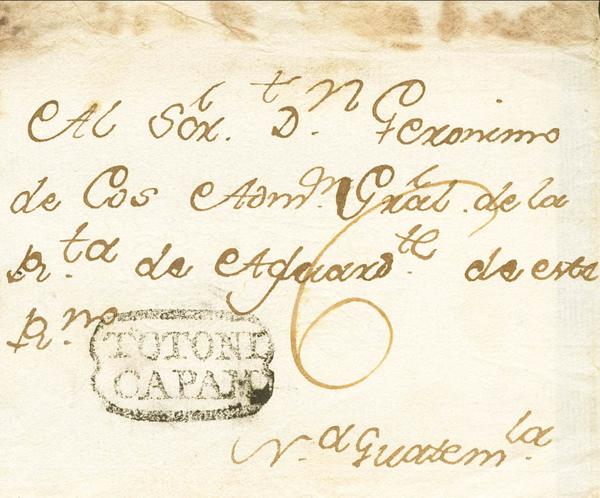 Al Sōr. D.ⁿ Geronimo
de Cos Adm.ᵒʳ Gral. de la
R.ᵗᵃ de Aguard.ᵗᵉ de este
R.ⁿᵒ
6
TOTONI
CAPAM
N.ᵃ Guatem.ˡᵃ